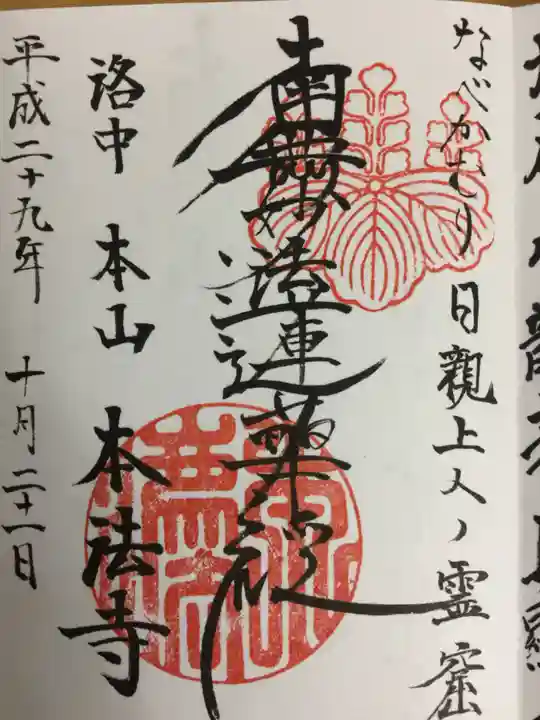 なべかむり日親上人ノ霊窟
南無妙法蓮華経
洛中 本山 本法寺
平成二十九年 十月二十一日